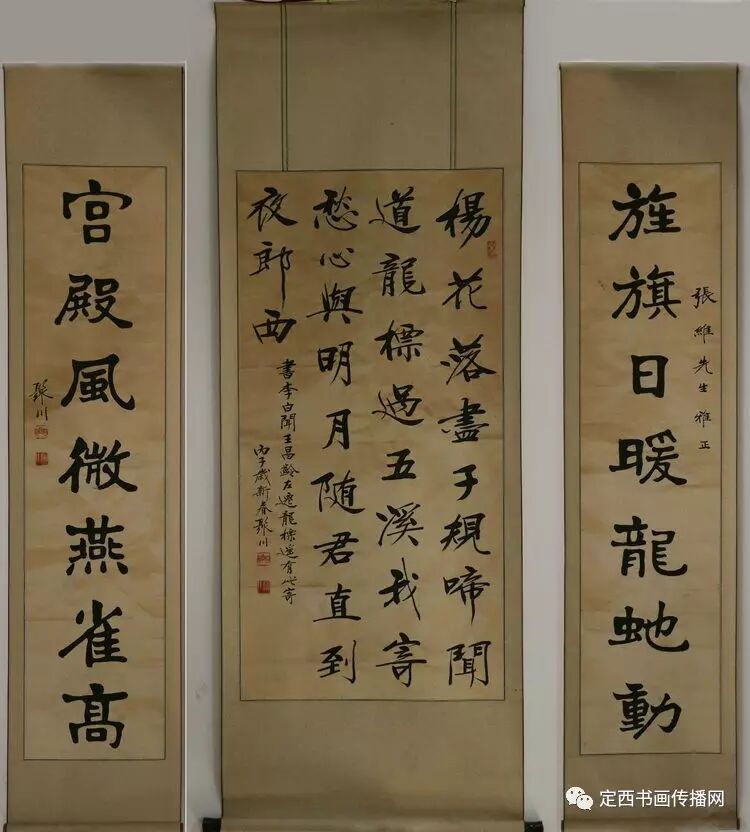 張維先生雅正
旌旗日暖龍虵動
楊花落盡子規啼聞
道龍標過五溪我寄
愁心與明月随君直到
夜郎西
書李白聞王昌齡左遷龍標遥有此寄
丙子歲新春聚川
宫殿風微燕雀高
聚川
定西书画传播网